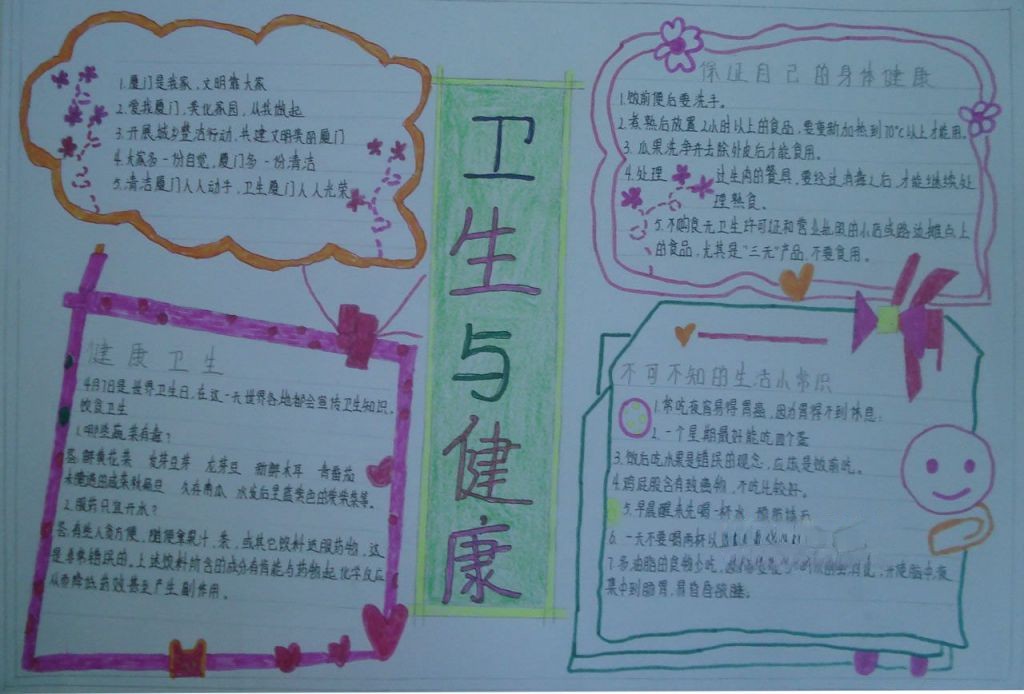 1.厦门是我家，文明靠大家
2.爱我厦门，美化家园，从我做起
3.开展城乡整洁行动，共建文明美丽厦门
4.大家多一份自觉，厦门多一份清洁
5.清洁厦门人人动手，卫生厦门人人光荣
卫生与健康
保证自己的身体健康
1.饭前便后要洗手。
2.煮熟后放置2小时以上的食品，要重新加热到70℃以上才能用。
3.瓜果洗净并去除外皮后才能食用。
4.处理 过生肉的餐具，要经过消毒之后，才能继续处
理熟食。
5.不购食无卫生许可证和营业执照的小店或路边摊点上
的食品，尤其是“三无”产品，不要食用。
健康卫生
4月7日是世界卫生日，在这一天世界各地都会宣传卫生知识。
饮食卫生
1.哪些蔬菜有毒？
答：鲜黄花菜 发芽豆芽 龙芽豆 新鲜木耳 青番茄
未腌透的咸菜 久存南瓜 水发后呈蓝紫色的紫菜等。
2.服药只宜开水？
答：有些人贪方便，随便拿果汁、茶，或其它饮料送服药物，这
是非常错误的。上述饮料所含的成分有可能与药物起化学反应
从而降低药效甚至产生副作用。
不可不知的生活小常识
1.常吃夜宵易得胃癌，因为胃得不到休息。
2.一个星期最好能吃四个蛋
3.饭后吃水果是错误的观念，应该是饭前吃。
4.鸡屁股含有致癌物，不吃比较好。
5.早晨醒来先喝一杯水
6.一天不要喝两杯以
7.多油脂的食物少吃，
集中到肠胃，易昏昏欲睡。